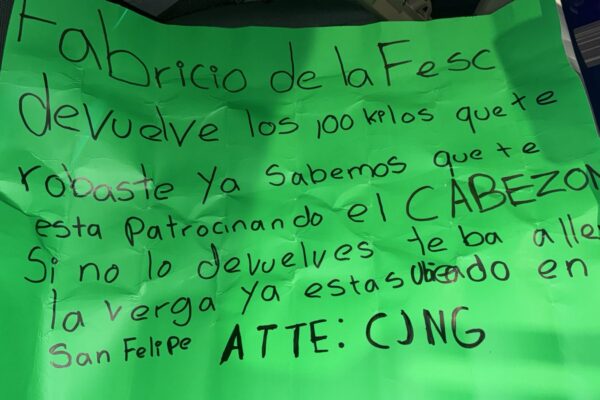 Fabricio de la Fesc
devuelve los 100 kilos que te
robaste ya sabemos que te
esta Patrocinando el CABEZON
Si no lo devuelves te ba alle
la verga ya estas ubicado en
San Felipe ATTE: CJNG